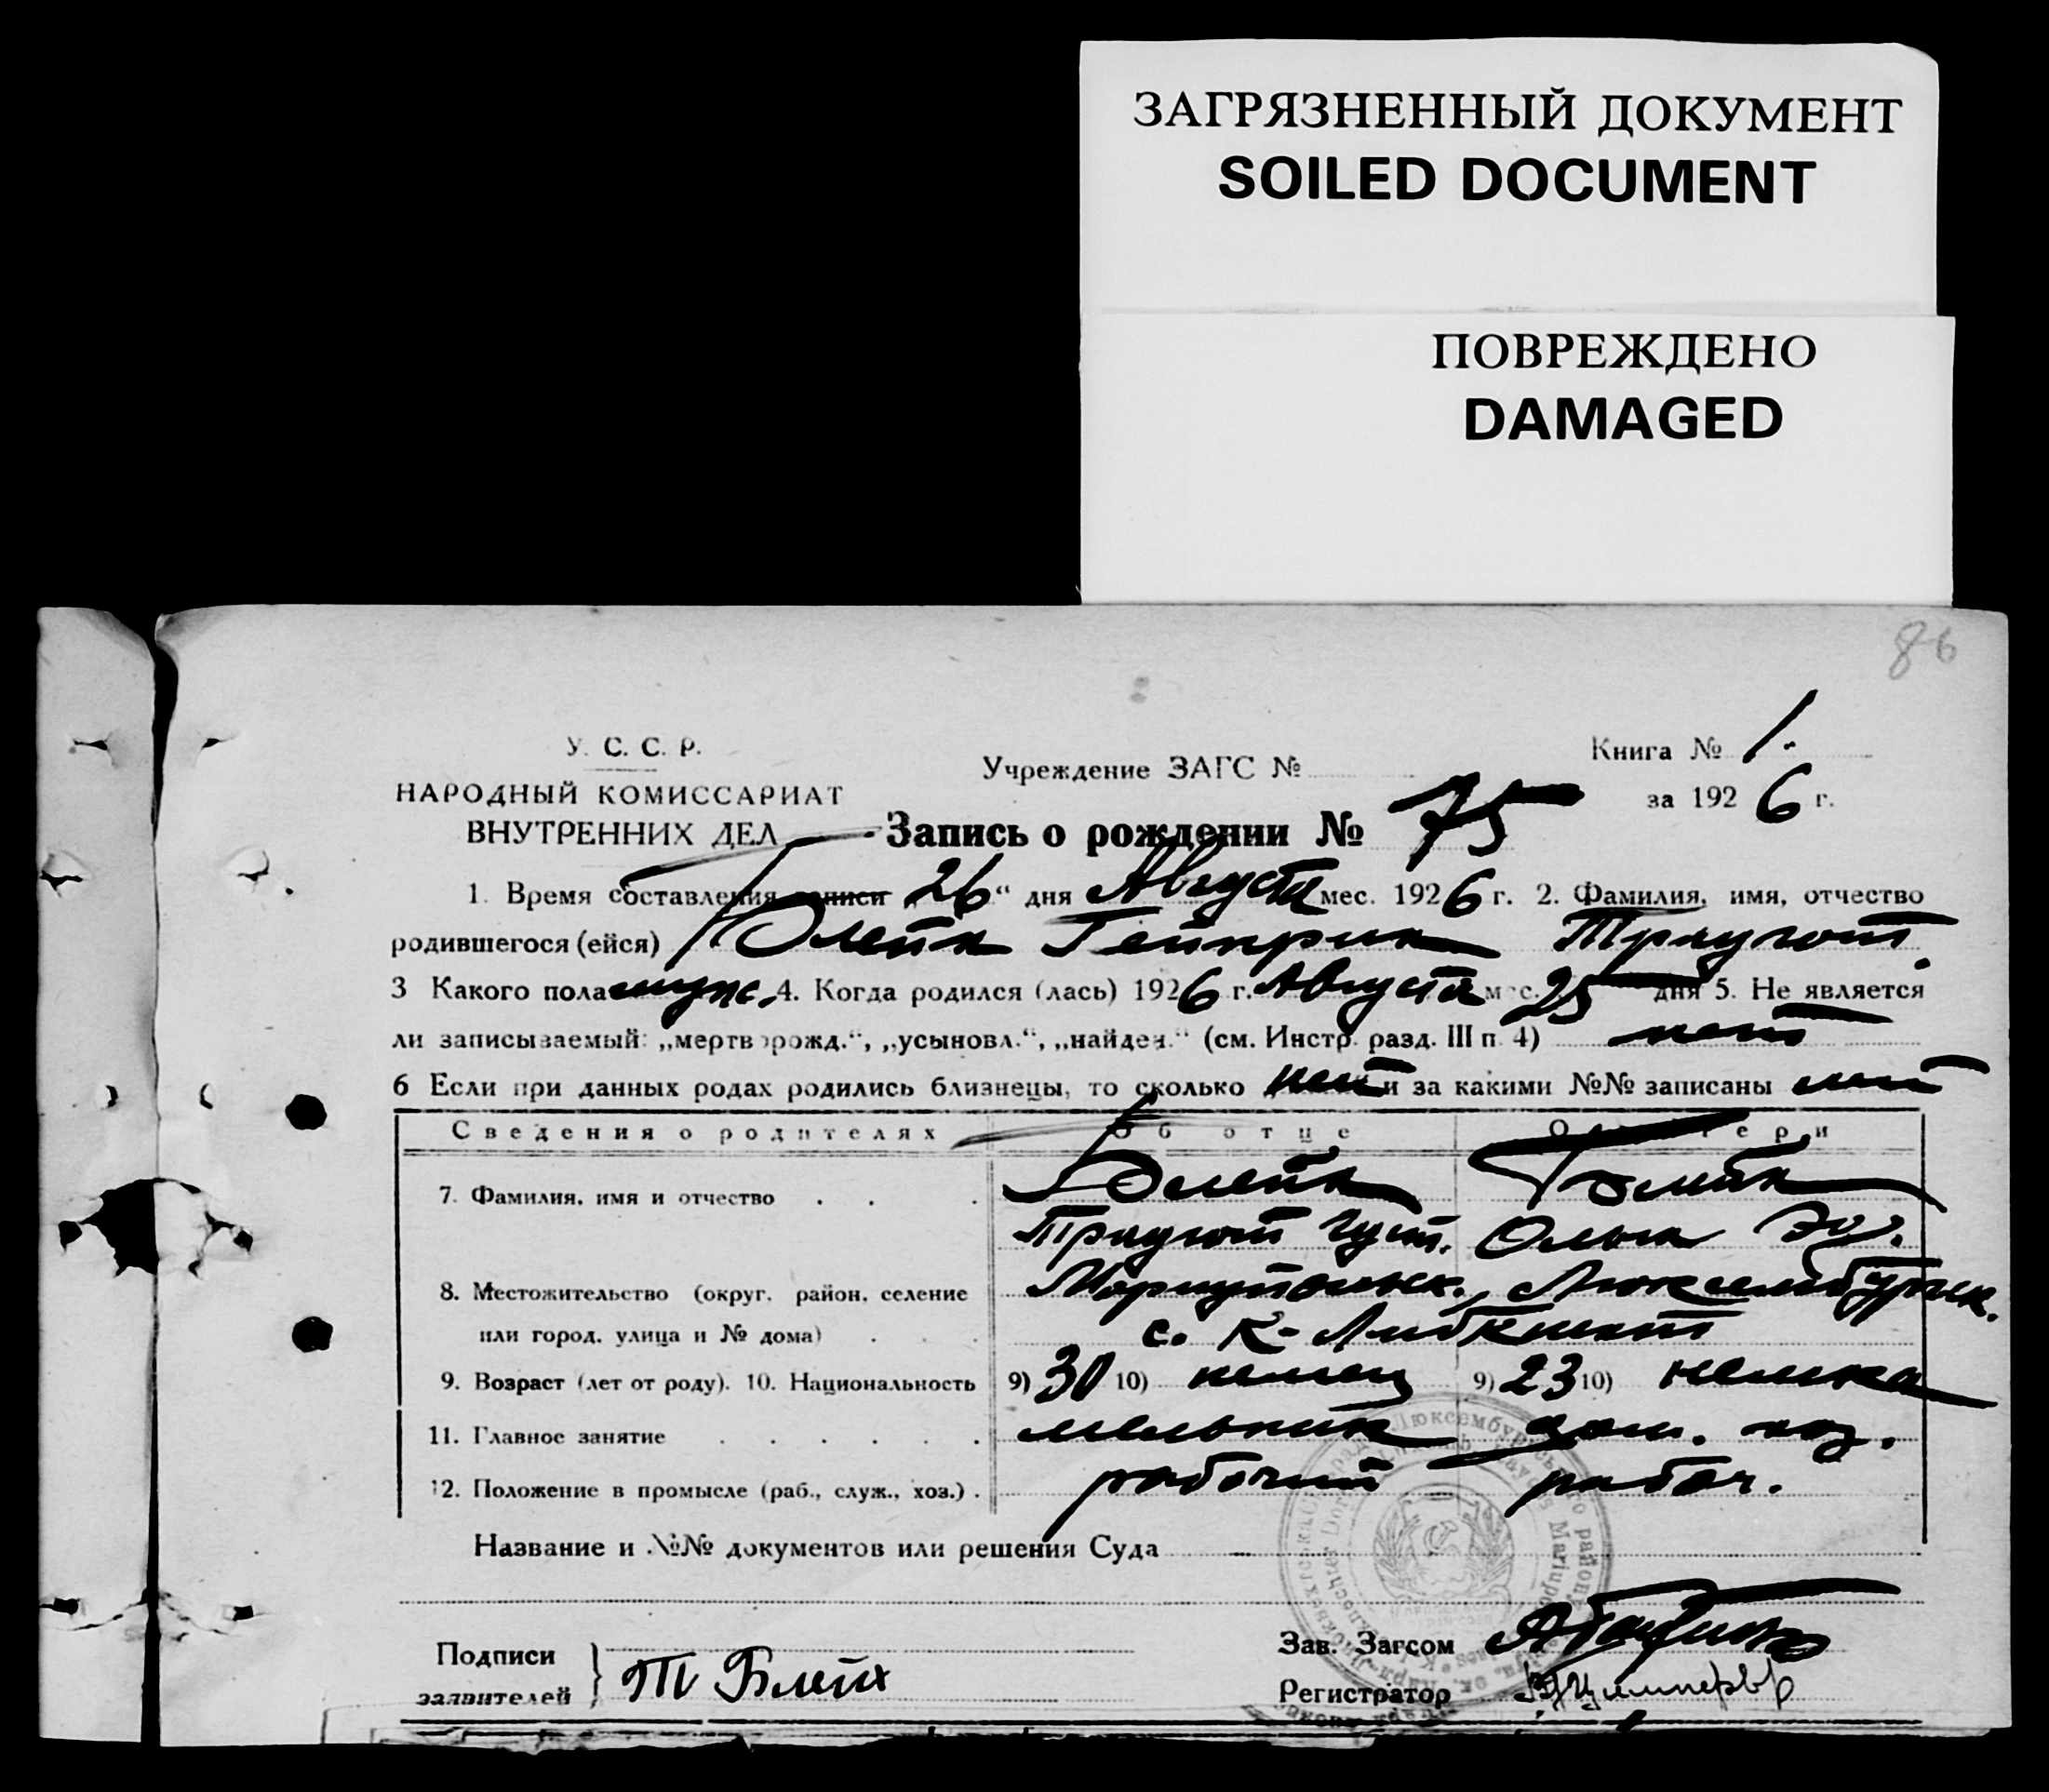 ЗАГРЯЗНЕННЫЙ ДОКУМЕНТ
SOILED DOCUMENT
ПОВРЕЖДЕНО
DAMAGED
86
У. С. С. Р.
НАРОДНЫЙ КОМИССАРИАТ
ВНУТРЕННИХ ДЕЛ
Учреждение ЗАГС №
Книга № 1.
за 1926 г.
Запись о рождении № 75
1. Время составления записи „26“ дня Августа мес. 1926 г. 2. Фамилия, имя, отчество
родившегося (ейся) Блейх Гейнрих Траугот.
3 Какого пола муж. 4. Когда родился (лась) 1926 г. Августа мес. 25 дня 5. Не является
ли записываемый: „мертворожд.“, „усыновл.“, „найден.“ (см. Инстр. разд. III п. 4) нет
6 Если при данных родах родились близнецы, то сколько нет и за какими №№ записаны нет
Сведения о родителях Об отце О матери
7. Фамилия, имя и отчество . . . Блейх Блейх
Траугот Густ. Ольга Эд.
8. Местожительство (округ, район, селение Мариупольск., Люксембургск.
или город, улица и № дома) . . . с. К-Либкнехт
9. Возраст (лет от роду). 10. Национальность 9) 30 10) немец 9) 23 10) немка
11. Главное занятие . . . . . . мельник дом. хоз.
12. Положение в промысле (раб., служ., хоз.) . рабочий рабоч.
Название и №№ документов или решения Суда —
Подписи заявителей } Т Блейх
Зав. Загсом
Регистратор